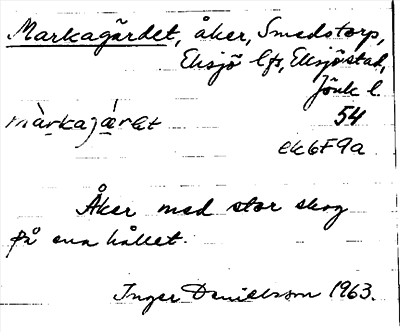 Markagärdet, åker, Smedstorp,
Eksjö lfs, Eksjö stad,
Jönk l
54
màrkajæ̀ret
ek6F9a
Åker med stor skog
på ena hållet.
Inger Danielsson 1963.